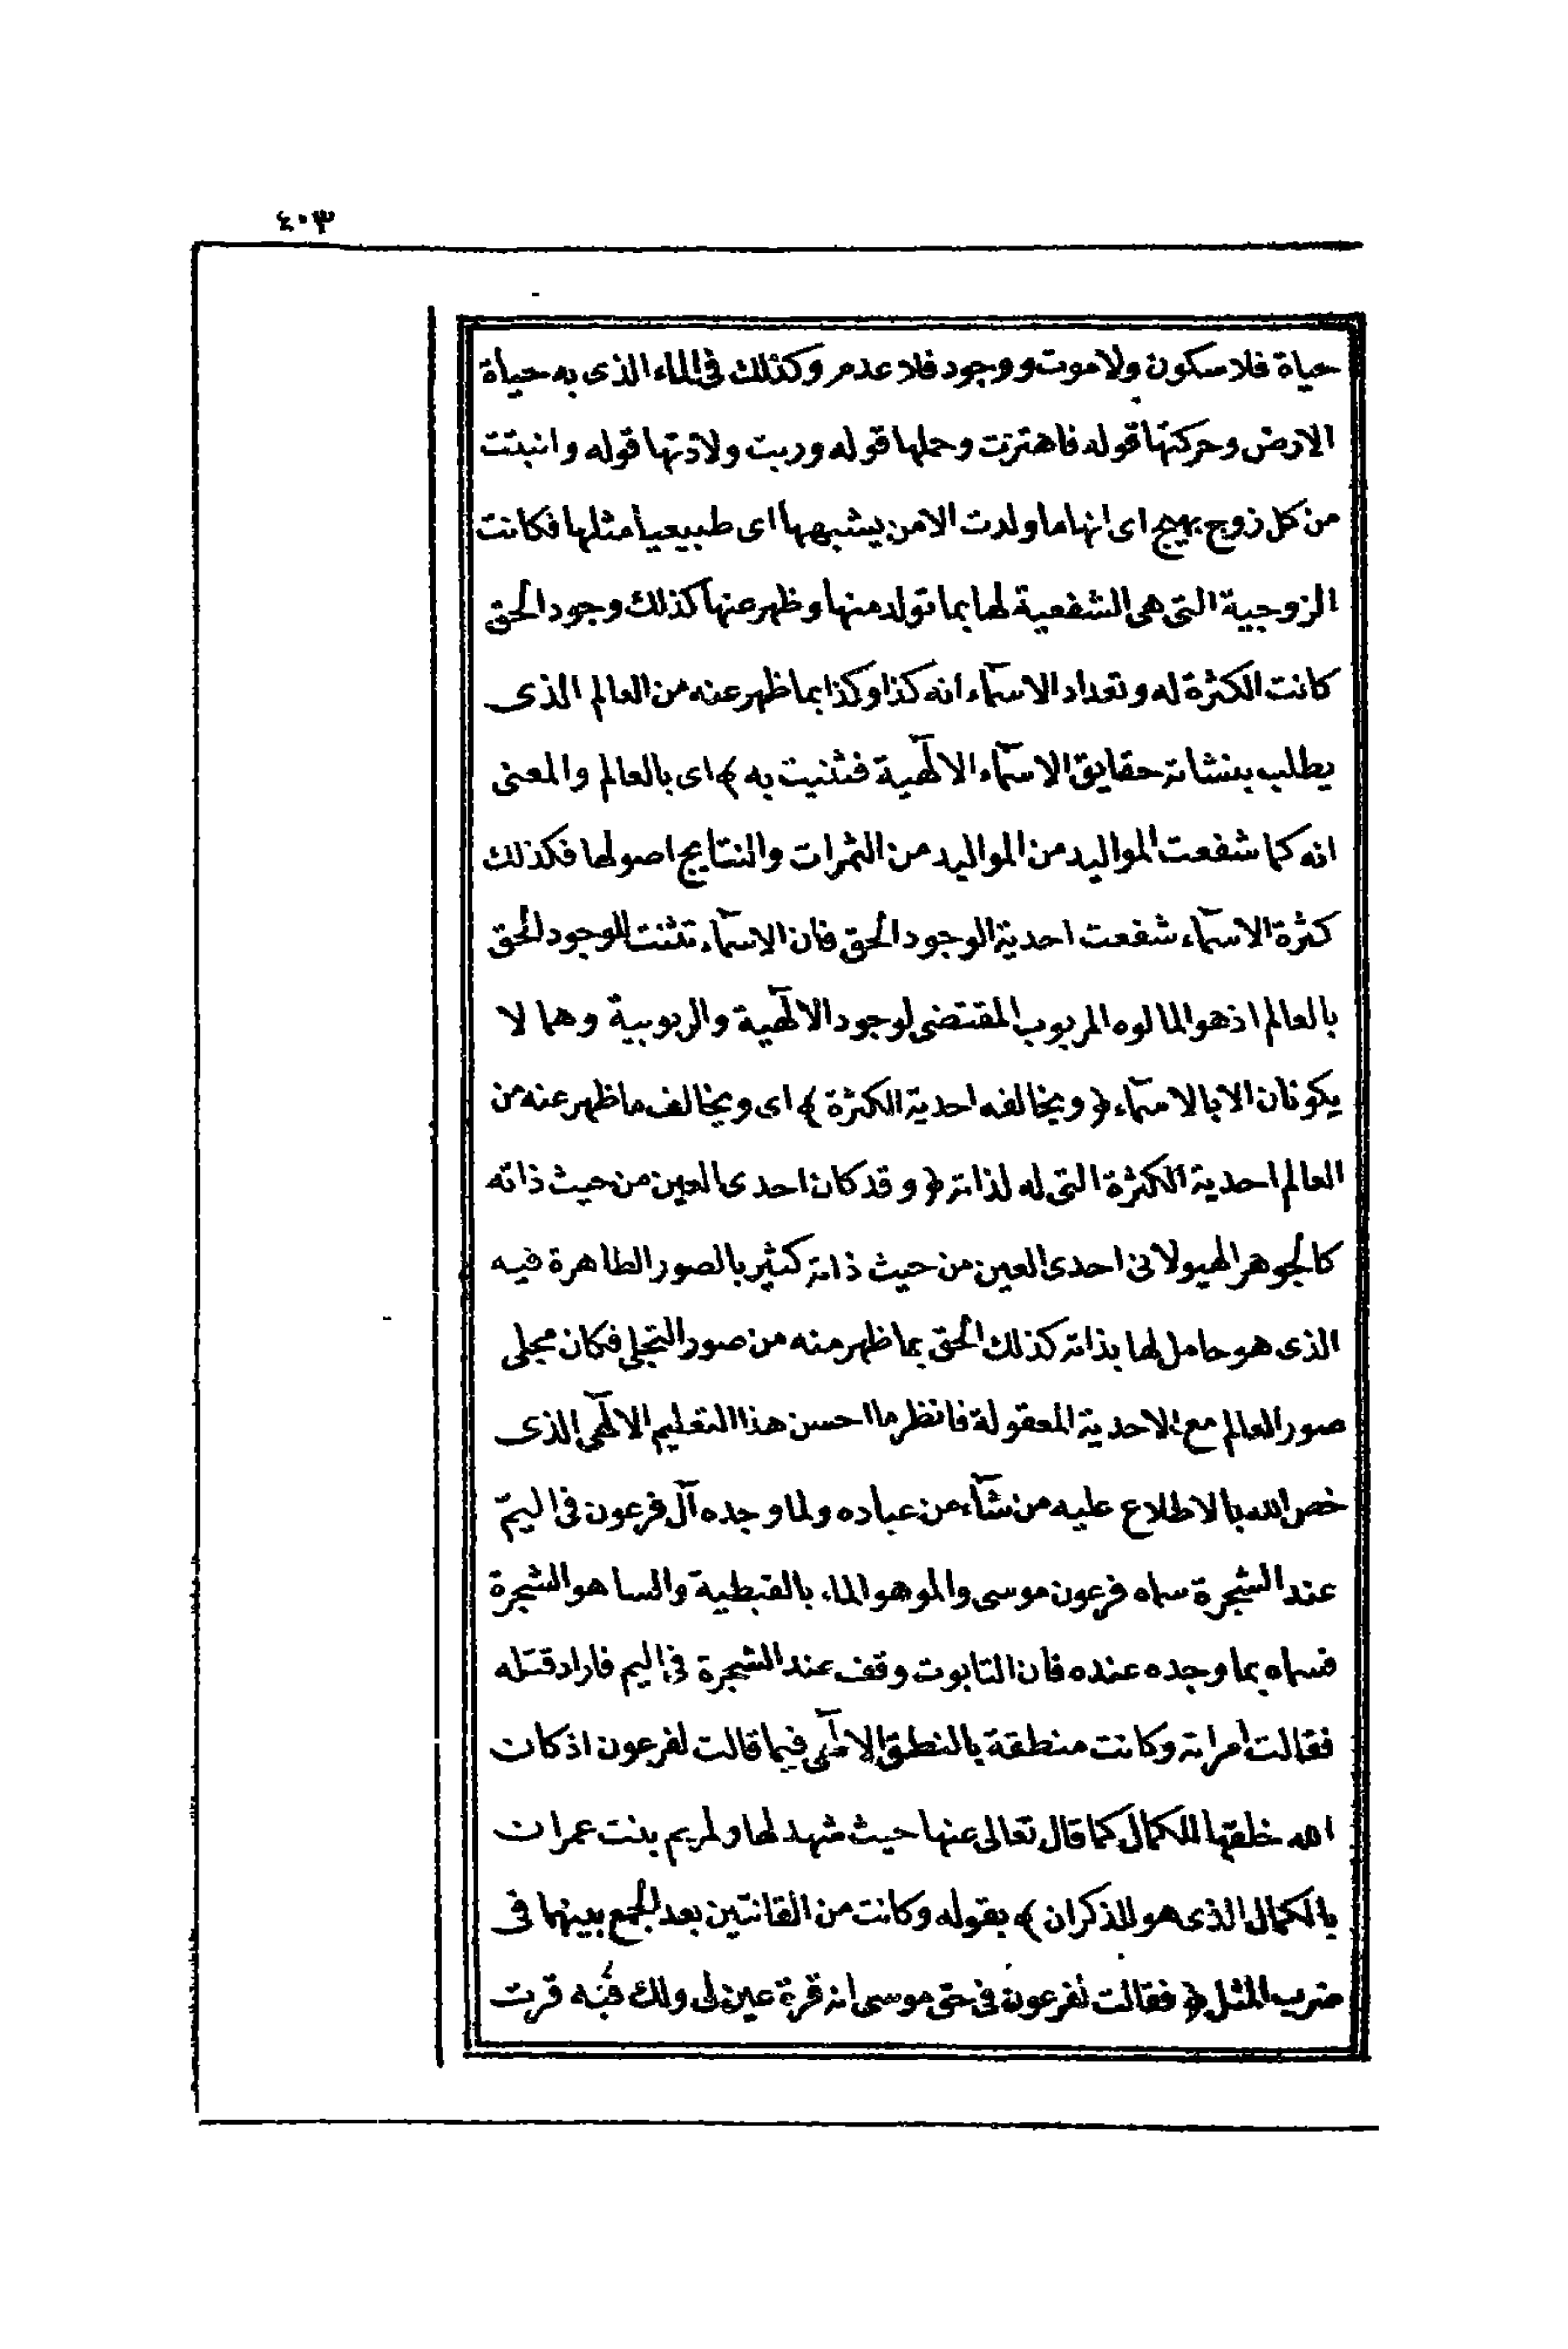 ٤٠٣
حياة فلا سكون ولا موت ووجود فلا عدم وكذلك فى الماء الذى به حياة
الارض وحركتها قوله فاهتزت وحملها قوله وربت ولادتها قوله وانبتت
من كل زوج بهيج اى انها ما ولدت الا من يشبهها اى طبيعيا مثلها فكانت
الزوجية التى هى الشفعية لها بما تولد منها وظهر عنها كذلك وجود الحق
كانت الكثرة له وتعداد الاسمآء انه كذا وكذا بما ظهر عنه من العالم الذى
يطلب بنشاته حقايق الاسمآء الالٓهية فثنيت به ﴾ اى بالعالم والمعنى
انه كما شفعت المواليد من المواليد من الثمرات والنتايج اصولها فكذلك
كثرة الاسمآء شفعت احدية الوجود الحق فان الاسمآء تثنت للوجود الحق
بالعالم اذ هو المالوه المربوب المقتضى لوجود الالٓهية والربوبية وهما لا
يكونان الا بالاسمآء ﴿ ويخالفه احدية الكثرة ﴾ اى ويخالف ما ظهر عنه من
العالم احدية الكثرة التى له لذاته ﴿ وقد كان احدى العين من حيث ذاته
كالجوهر الهيولانى احدى العين من حيث ذاته كثير بالصور الظاهرة فيه
الذى هو حامل لها بذاته كذلك الحق بما ظهر منه من صور التجلى فكان مجلى
صور العالم مع الاحدية المعقولة فانظر ما احسن هذا التعليم الالٓهى الذى
خص الله بالاطلاع عليه من شآء من عباده ولما وجده آل فرعون فى اليمّ
عند الشجرة سماه فرعون موسى والمو هو الماء بالقبطية والسا هو الشجرة
فسماه بما وجده عنده فان التابوت وقف عند الشجرة فى اليم فاراد قتله
فقالت امراته وكانت منطقة بالنطق الالٓهى فيما قالت لفرعون اذ كان
الله خلقها للكمال كما قال تعالى عنها حيث شهد لها ولمريم بنت عمران
بالكمال الذى هو للذكران ﴾ بقوله وكانت من القانتين بعد الجمع بينهما فى
ضرب المثل ﴿ فقالت لفرعون فى حق موسى انه قرة عين لى ولك فبه قرت